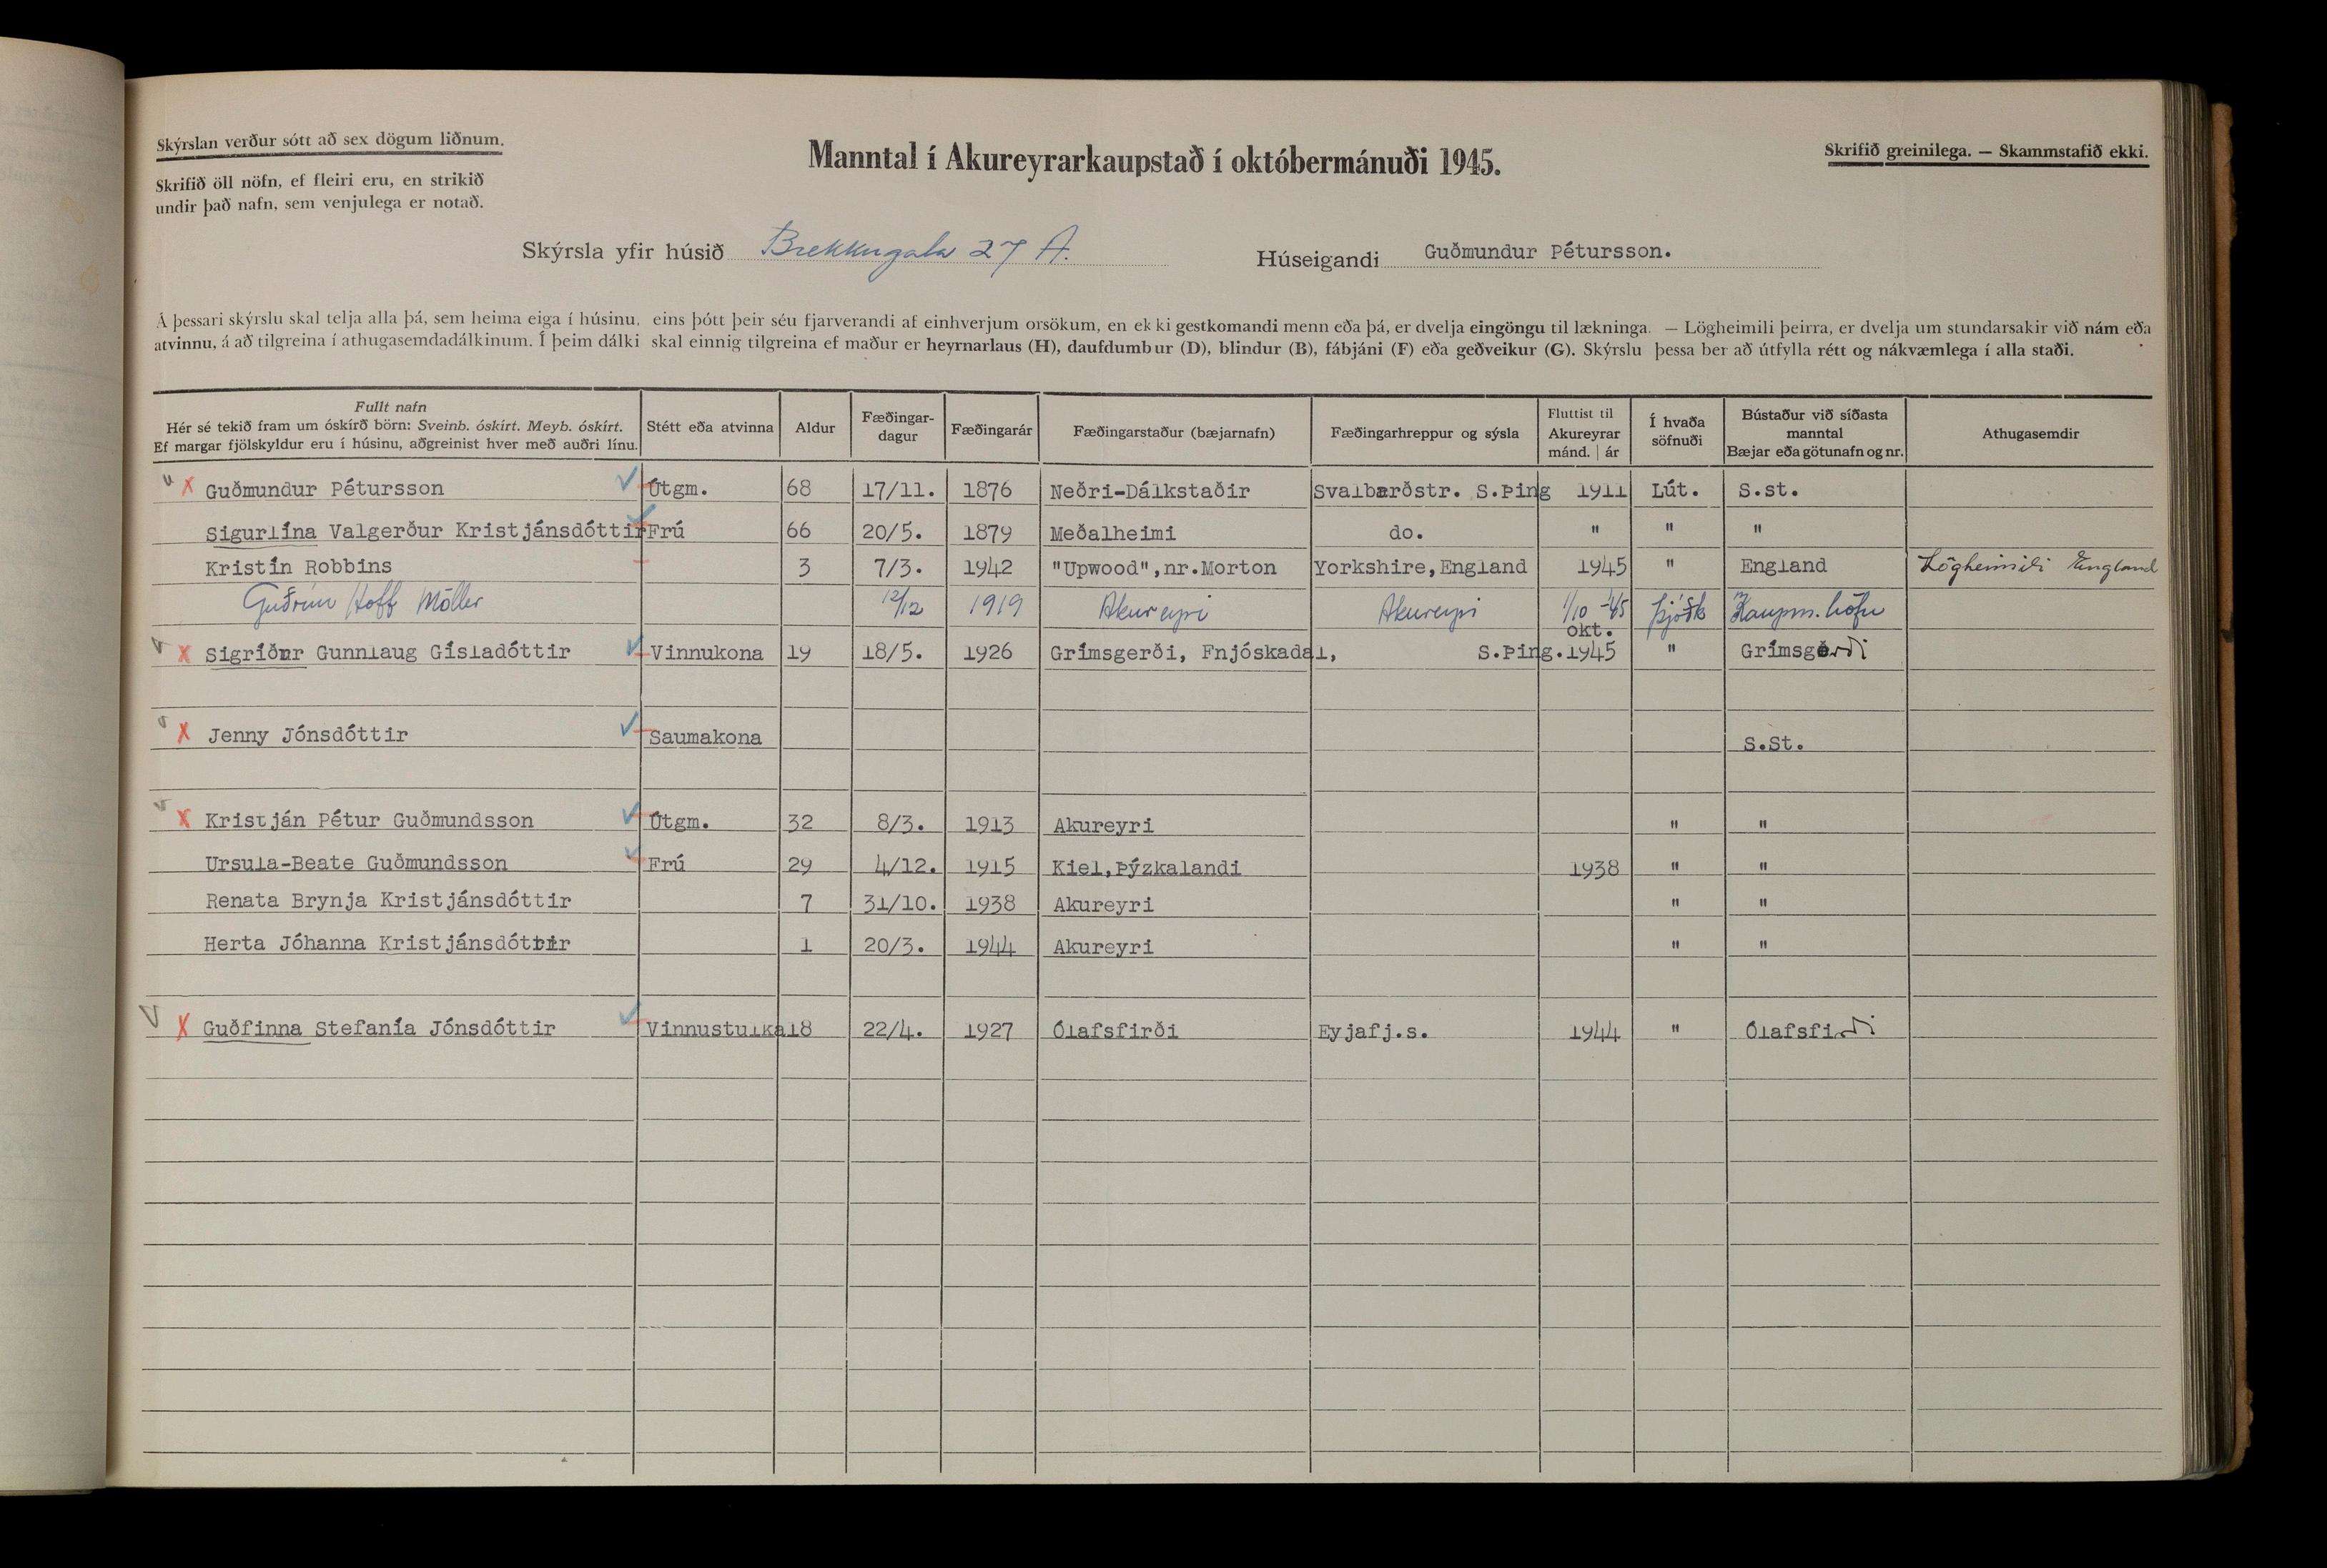 Skýrslan verður sótt að sex dögum liðnum.
Skrifið öll nöfn, ef fleiri eru, en strikið
undir það nafn, sem venjulega er notað.
Manntal í Akureyrarkaupstað í októbermánuði 1945.
Skrifið greinilega. — Skammstafið ekki.
Skýrsla yfir húsið Brekkugata 27 A.
Húseigandi Guðmundur Pétursson.
Á þessari skýrslu skal telja alla þá, sem heima eiga í húsinu, eins þótt þeir séu fjarverandi af einhverjum orsökum, en ekki gestkomandi menn eða þá, er dvelja eingöngu til lækninga. — Lögheimili þeirra, er dvelja um stundarsakir við nám eða
atvinnu, á að tilgreina í athugasemdadálkinum. Í þeim dálki skal einnig tilgreina ef maður er heyrnarlaus (H), daufdumbur (D), blindur (B), fábjáni (F) eða geðveikur (G). Skýrslu þessa ber að útfylla rétt og nákvæmlega í alla staði.
Fullt nafn
Hér sé tekið fram um óskírð börn: Sveinb. óskírt. Meyb. óskírt.
Ef margar fjölskyldur eru í húsinu, aðgreinist hver með auðri línu.
Stétt eða atvinna
Aldur
Fæðingar-
dagur
Fæðingarár
Fæðingarstaður (bæjarnafn)
Fæðingarhreppur og sýsla
Fluttist til
Akureyrar
mánd. | ár
Í hvaða
söfnuði
Bústaður við síðasta
manntal
Bæjar eða götunafn og nr.
Athugasemdir
Guðmundur Pétursson Útgm. 68 17/11. 1876 Neðri-Dálkstaðir Svalbarðstr. S.Þing 1911 Lút. S.st.
Sigurlína Valgerður Kristjánsdóttir Frú 66 20/5. 1879 Meðalheimi do. " " "
Kristín Robbins 3 7/3. 1942 "Upwood",nr.Morton Yorkshire,England 1945 " England Lögheimili England
Guðrún Hoff Möller 12/12 1919 Akureyri Akureyri 1/10 -45 Þjóðk Kaupm.höfn
Sigríður Gunnlaug Gísladóttir Vinnukona 19 18/5. 1926 Grímsgerði, Fnjóskadal, S.Þing. okt. 1945 " Grímsgerði
Jenny Jónsdóttir Saumakona S.St.
Kristján Pétur Guðmundsson Útgm. 32 8/3. 1913 Akureyri " "
Ursula-Beate Guðmundsson Frú 29 4/12. 1915 Kiel,Þýzkalandi 1938 " "
Renata Brynja Kristjánsdóttir 7 31/10. 1938 Akureyri " "
Herta Jóhanna Kristjánsdóttir 1 20/3. 1944 Akureyri " "
Guðfinna Stefanía Jónsdóttir Vinnustulka 18 22/4. 1927 Ólafsfirði Eyjafj.s. 1944 " Ólafsfirði